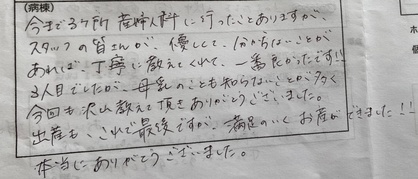 (病棟)
今まで3ケ所産婦人科に行ったことありますが、
スタッフの皆さんが、優しくて、分からないことが
あれば、丁寧に教えてくれて、一番良かったです!!
3人目でしたが、母乳のことも知らないことが多く
今回も沢山教えて頂きありがとうございました。
出産も、これで最後ですが、満足のいくお産ができました!!
本当にありがとうございました。